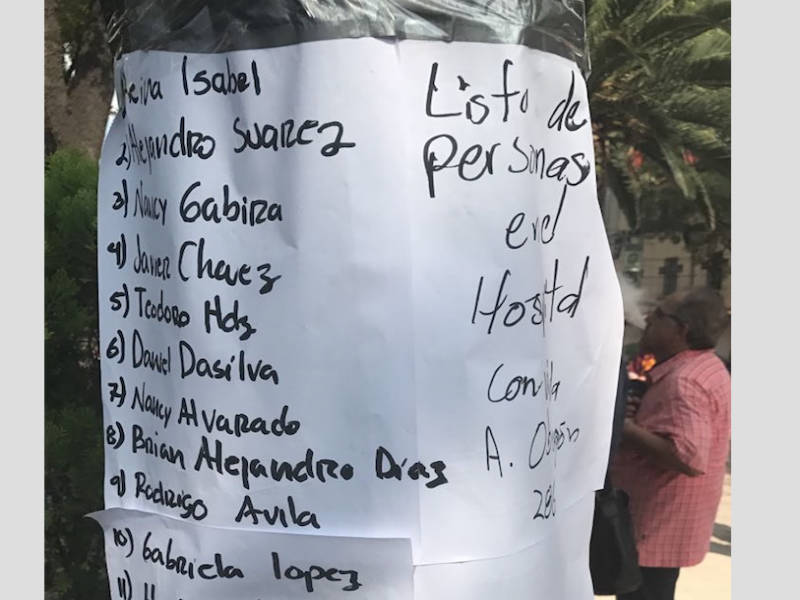 Reina Isabel
2) Alejandro Suarez
3) Nancy Gabiza
4) Javier Chavez
5) Teodoro Hdz
6) Daniel Dasilva
7) Nancy Alvarado
8) Brian Alejandro Díaz
9) Rodrigo Avila
10) Gabriela lopez
11)
Lista de
Personas
en el
Hospital
A.